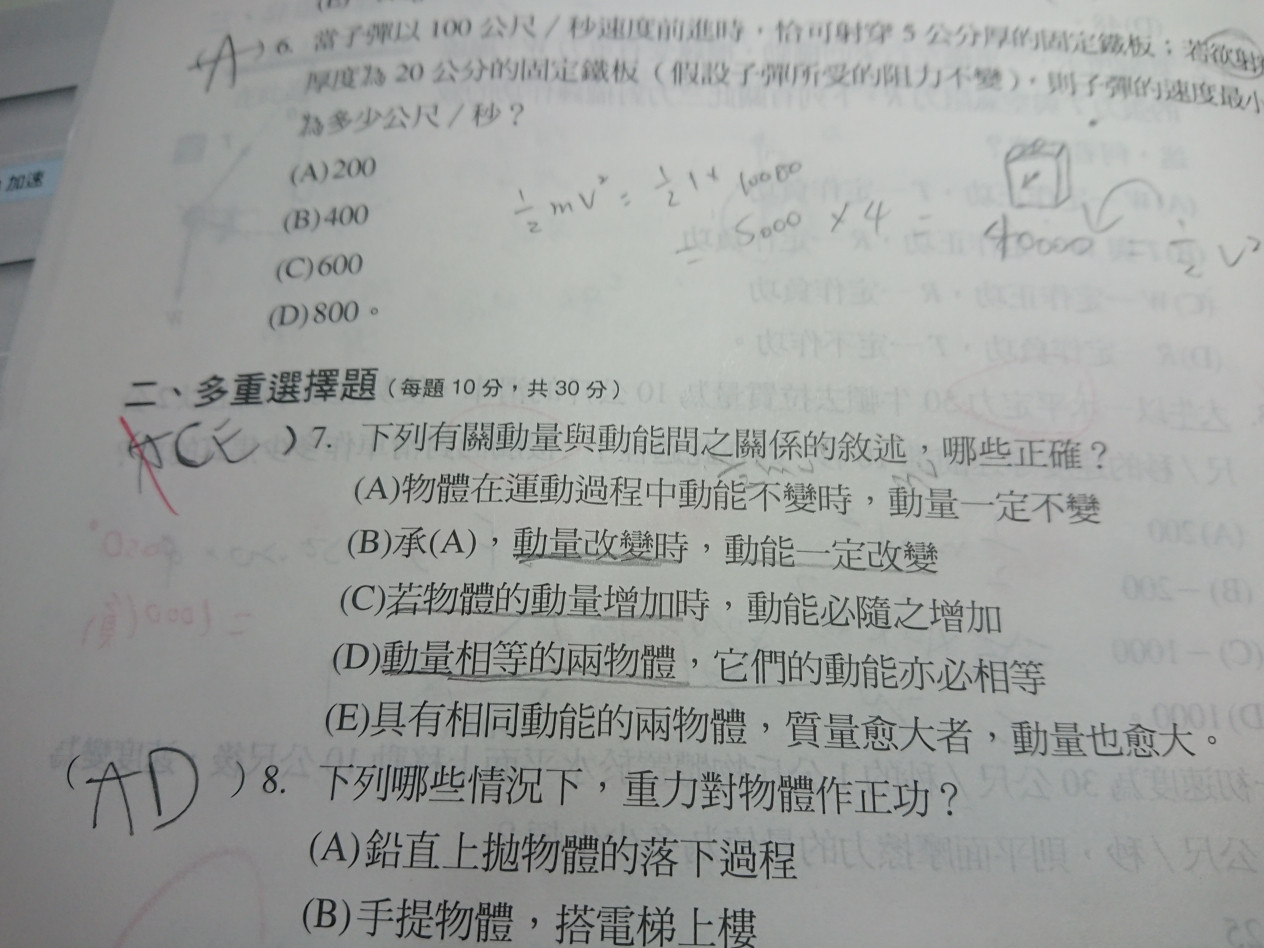 (A) 6. 當子彈以 100 公尺／秒速度前進時，恰可射穿 5 公分厚的固定鐵板；若欲射
厚度為 20 公分的固定鐵板（假設子彈所受的阻力不變），則子彈的速度最小
為多少公尺／秒？
(A)200
(B)400
(C)600
(D)800。
加速
½mv² = ½ 1 × 10000
= 5000 × 4 = 40000 = ½ v²
二、多重選擇題（每題 10 分，共 30 分）
ACE ) 7. 下列有關動量與動能間之關係的敘述，哪些正確？
(A)物體在運動過程中動能不變時，動量一定不變
(B)承(A)，動量改變時，動能一定改變
(C)若物體的動量增加時，動能必隨之增加
(D)動量相等的兩物體，它們的動能亦必相等
(E)具有相同動能的兩物體，質量愈大者，動量也愈大。
(AD) 8. 下列哪些情況下，重力對物體作正功？
(A)鉛直上拋物體的落下過程
(B)手提物體，搭電梯上樓